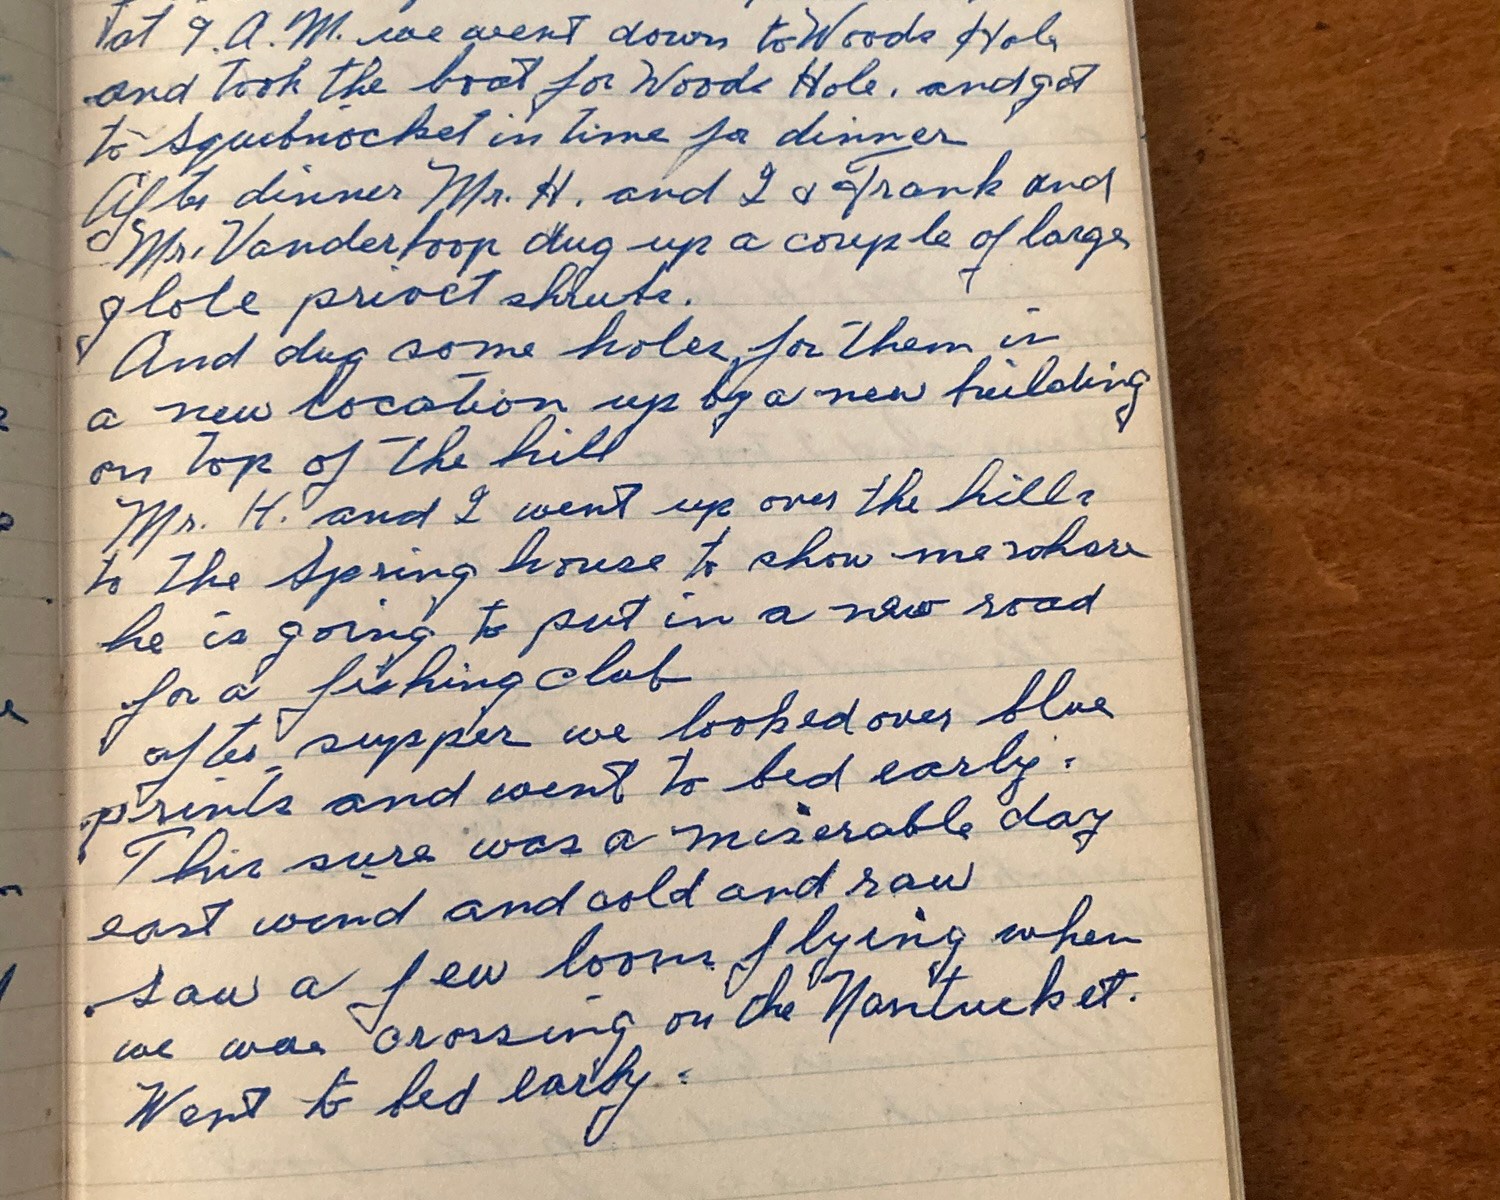 at 9. A. M. we went down to Woods Hole
and took the boat for Woods Hole. and got
to Squibnocket in time for dinner
After dinner Mr. H. and I & Frank and
Mr. Vanderhoop dug up a couple of large
globe privet shrubs.
And dug some holes for them in
a new location up by a new building
on top of the hill
Mr. H. and I went up over the hills
to the Spring house to show me where
he is going to put in a new road
for a fishing club
after supper we looked over blue
prints and went to bed early.
This sure was a miserable day
east wind and cold and raw
saw a few loons flying when
we was crossing on the Nantucket.
Went to bed early.